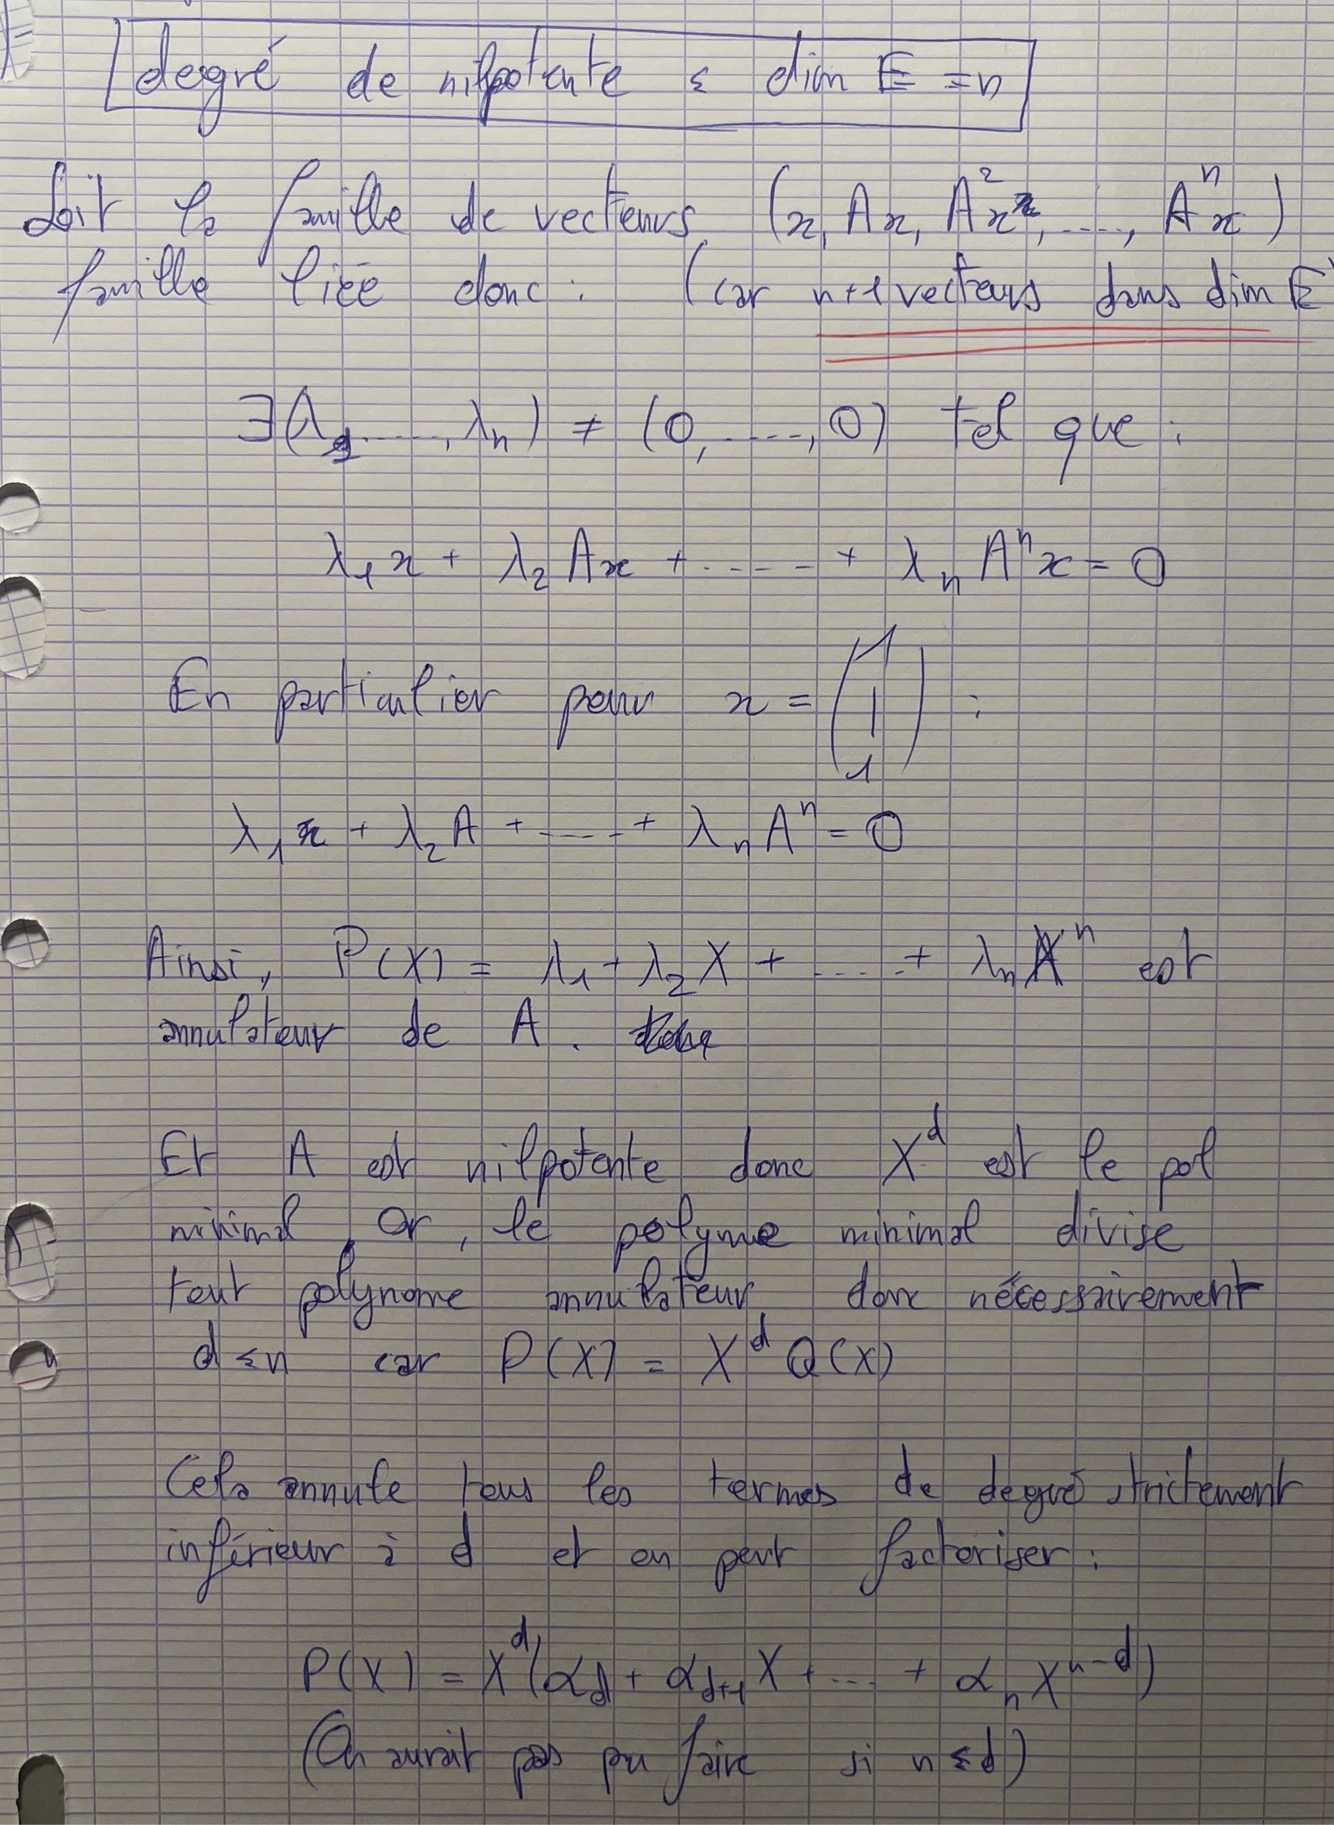 degré de nilpotente ≤ dim E = n
Soit la famille de vecteurs (x, Ax, A²x, ...., Aⁿx)
famille liée donc : (car n+1 vecteurs dans dim E)
∃(λ₁ ....., λₙ) ≠ (0, ....., 0) tel que :
λ₁x + λ₂Ax + ..... + λₙAⁿx = 0
En particulier pour x = (1 1 1) :
λ₁ + λ₂A + .... + λₙAⁿ = 0
Ainsi, P(X) = λ₁ + λ₂X + .... + λₙXⁿ est
annulateur de A.
Et A est nilpotente donc X^d est le pol
minimal. Or, le polyme minimal divise
tout polynome annulateur donc nécessairement
d ≤ n car P(X) = X^d Q(X)
Cela annule tous les termes de degré strictement
inférieur à d et on peut factoriser :
P(X) = X^d(α_d + α_{d+1}X + .... + αₙX^{n-d})
(On aurait pas pu faire si n ≤ d)